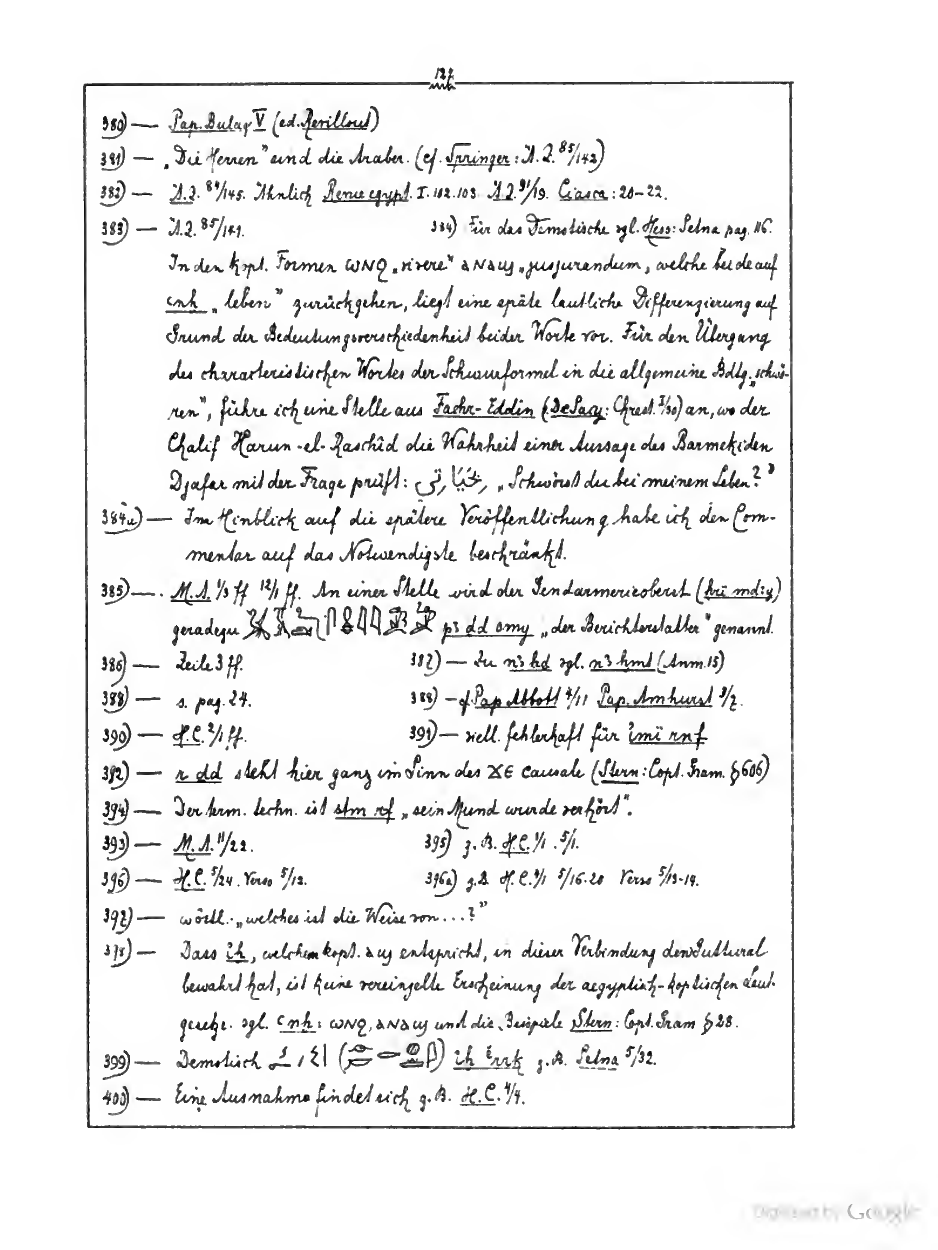 127
380) — Pap. Bulaq V (ed. Revillout)
381) — „Die Herren" sind die Araber. (cf. Springer: Ä.Z. 85/142)
382) — Ä.Z. 84/145. Ähnlich Revue egypt. I. 102. 103. Ä.Z 91/19. Ciasca: 20–22.
383) — Ä.Z. 85/141. 384) Für das Demotische vgl. Hess: Setna pag. 116.
In den kopt. Formen ⲱⲛϩ „vivere" ⲁⲛⲁϣ „jusjurandum, welche beide auf
cnh „leben" zurückgehen, liegt eine späte lautliche Differenzierung auf
Grund der Bedeutungsverschiedenheit beider Worte vor. Für den Übergang
des characteristischen Wortes der Schwurformel in die allgemeine Bdtg. „schwö-
ren", führe ich eine Stelle aus Fachr-Eddin (De Sacy: Chrest. I/30) an, wo der
Chalif Harun-el-Raschîd die Wahrheit einer Aussage des Barmekiden
Djafar mit der Frage prüft: „Schwörst du bei meinem Leben?"
384a) — Im Hinblick auf die spätere Veröffentlichung habe ich den Com-
mentar auf das Notwendigste beschränkt.
385) — M.A. 1/3 ff 12/1 ff. An einer Stelle wird der Gendarmerieoberst (ḥrï mdꜣy)
geradezu pꜣ dd smy „der Berichterstatter" genannt.
386) — Zeile 3 ff. 387) — Zu nꜣ kd vgl. nꜣ hmt (Anm. 15)
388) — s. pag. 24. 389) — cf. Pap Abbott 4/11 Pap. Amhurst 3/7.
390) — H.C. 2/1 ff. 391) — viell. fehlerhaft für ꜣmï rnf
392) — r dd steht hier ganz im Sinn des ϫⲉ causale (Stern: Copt. Gram. § 606)
394) — Der term. techn. ist stm rf „sein Mund wurde verhört".
393) — M.A. 11/22. 395) z. B. H.C. 4/1 . 5/1.
396) — H.C. 5/24. Verso 5/12. 396a) z.B. H.C. 4/1 5/16-20 Verso 5/13-19.
397) — wörtl. „welches ist die Weise von...?"
398) — Dass ꜣḫ, welchem kopt. ⲁϣ entspricht, in dieser Verbindung den Guttural
bewahrt hat, ist keine vereinzelte Erscheinung der aegyptisch-koptischen Laut-
gesetze. vgl. cnh: ⲱⲛϩ, ⲁⲛⲁϣ und die Beispiele Stern: Copt. Gram § 28.
399) — Demotisch z. B. Setna 5/32.
400) — Eine Ausnahme findet sich z. B. H.C. 4/4.
Digitized by Google